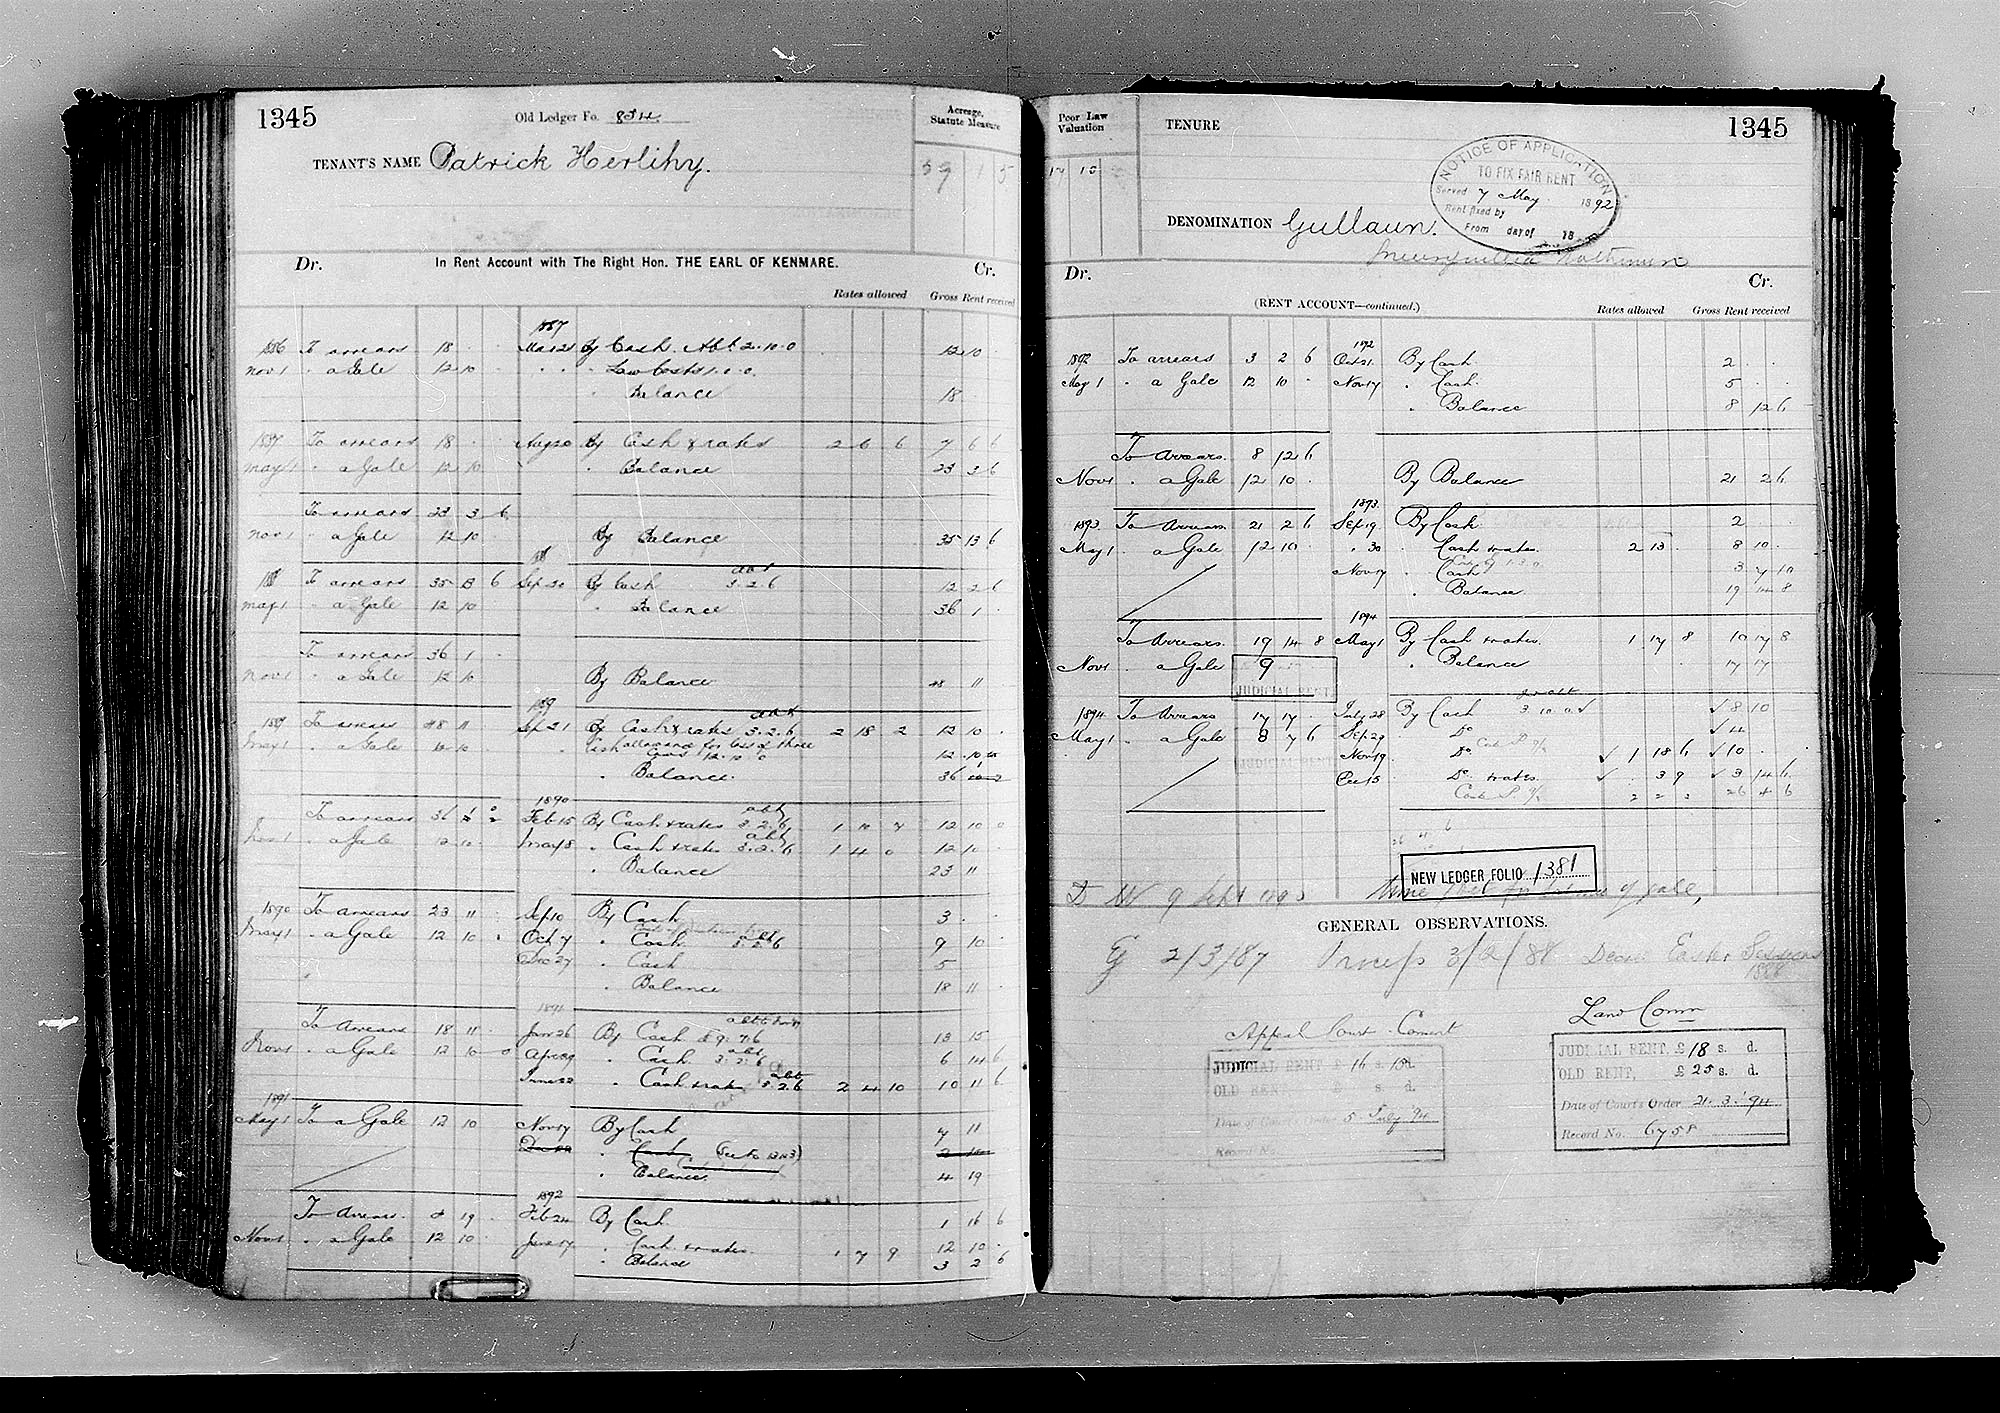 1345
Old Ledger Fo. 834
Acreage, Statute Measure
TENANT'S NAME Patrick Herlihy.
39 1 5
Dr. In Rent Account with The Right Hon. THE EARL OF KENMARE. Cr.
Rates allowed Gross Rent received
1887
1886 To arrears 18 . . Mar 21 By Cash. Abt. 2.10.0 12 10 .
Nov 1 . a Gale 12 10 . . Law Costs 1.0.0.
. Balance 18 . .
1887 To arrears 18 . . Aug 20 By Cash & rates 2 6 6 7 6 6
May 1 . a Gale 12 10 . Balance 23 3 6
To arrears 23 3 6
Nov 1 . a Gale 12 10 By Balance 35 13 6
1888
1888 To arrears 35 13 6 Sep 20 By Cash abt 3.2.6 12 2 6
May 1 . a Gale 12 10 . Balance 36 1 .
To arrears 36 1 .
Nov 1 . a Gale 12 10 By Balance 48 11
1889
1889 To arrears 48 11 Sep 21 By Cash & rates abt 3.2.6 2 18 2 12 10 .
May 1 . a Gale 12 10 . Cash allowance for loss of three
12.10.0 12 10
. Balance. 36 1
1890
To arrears 36 1 0 Feb 15 By Cash & rates abt 3.2.6 1 10 7 12 10 0
Nov 1 . a Gale 12 10 . May 8 . Cash & rates abt 3.2.6 1 4 0 12 10 .
. Balance 23 11
1890 To arrears 23 11 . Sep 10 By Cash 3 . .
May 1 . a Gale 12 10 . Oct 7 . Cash abt 3.2.6 9 10
Dec 27 . Cash 5
. Balance 18 11 .
1891
To Arrears 18 11 . Jan 26 By Cash 13 15
Nov 1 . a Gale 12 10 0 Apr 29 . Cash abt 3.2.6 6 14 6
June 22 . Cash & rates abt 3.2.6 2 4 10 10 11 6
1891
May 1 To a Gale 12 10 Nov 17 By Cash 7 11
Cash
. Balance. 4 19
1892
To Arrears. 4 19 . Feb 24 By Cash 1 16 6
Nov 1 . a Gale 12 10 . . Cash & rates 1 7 9 12 10 .
. Balance 3 2 6
Poor Law Valuation
TENURE
1345
17 15
NOTICE OF APPLICATION
TO FIX FAIR RENT
Served 7 May 1892
Rent fixed by
From day of 18
DENOMINATION Gullaun.
Dr. Cr.
(RENT ACCOUNT—continued.) Rates allowed Gross Rent received
1892
1892 To arrears 3 2 6 Oct 21. By Cash 2 . .
May 1 . a Gale 12 10 . Nov 17 . Cash. 5 . .
. Balance 8 12 6
To Arrears. 8 12 6
Nov 1 . a Gale 12 10 . By Balance 21 2 6
1893
1893. To Arrears 21 2 6 Sep 19. By Cash 2 .
May 1 . a Gale 12 10 . . 30 . Cash & rates. 2 13 . 8 10 .
Nov 17 . Cash 3 7 10
. Balance. 19 14 8
1894
To Arrears. 19 14 8 May 1 By Cash & rates. 1 17 8 10 17 8
Nov 1 . a Gale 9 . Balance 17 17
JUDICIAL RENT
1894 To Arrears 17 17 . July 28 By Cash 3 10 0 8 10
May 1 . a Gale 8 7 6 Sep. 29 Do 4
JUDICIAL RENT
Nov 19 Do 1 18 6 10 .
Dec 15 Do & rates. . 3 9 3 14 6
2 2 3 26 4 6
NEW LEDGER FOLIO 1381
GENERAL OBSERVATIONS.
2/3/87 Decree Easter Sessions
1888
Land Comm
Appeal Court - Consent
JUDICIAL RENT £ 16 s. 15 d.
OLD RENT, £ s. d.
Date of Court's Order 5 July '94
Record No.
JUDICIAL RENT, £ 18 s. d.
OLD RENT, £ 25 s. d.
Date of Court's Order 21.3.'94
Record No. 6758